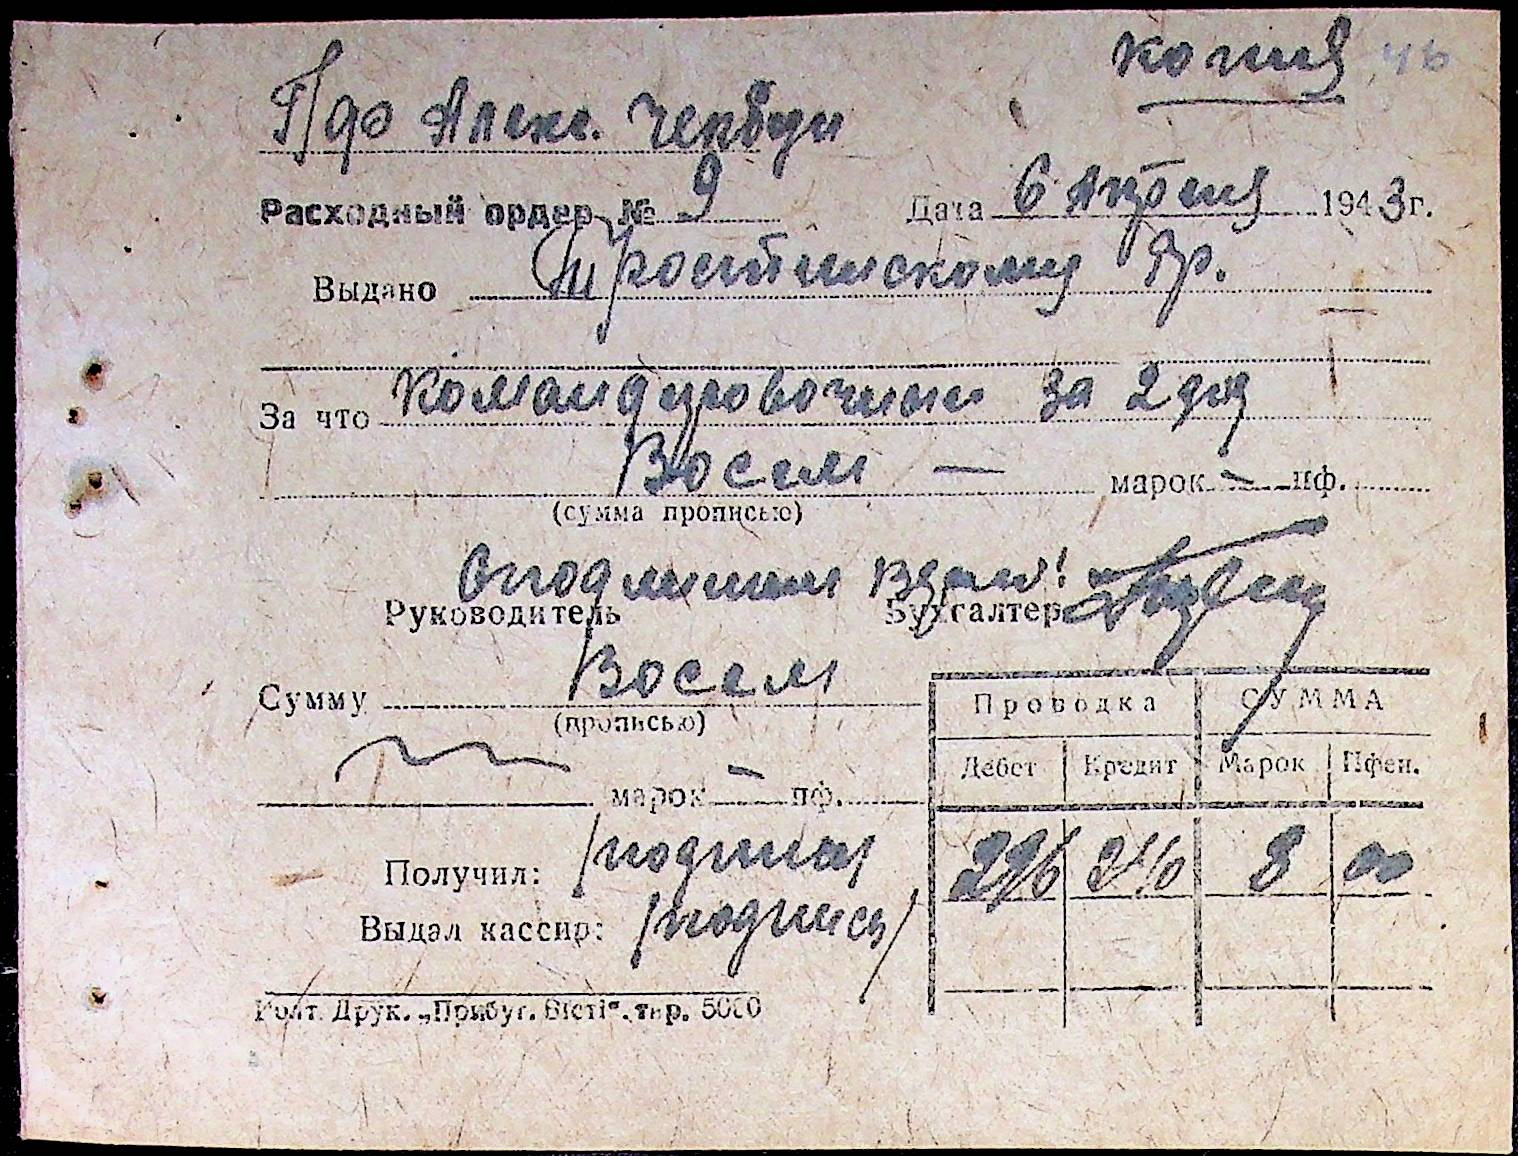 копия 46
Пдо Алекс. Церкви
Расходный ордер № 9 Дата 6 Апреля 1943 г.
Выдано Тростинскому Яр.
За что командировочные за 2 дня
Восем — марок — пф.
(сумма прописью)
С подлинным верно!
Руководитель Бухгалтер
Сумму Восем
(прописью)
Проводка СУММА
Дебет Кредит Марок Пфен.
марок — пф.
8 00
Получил: /подпись/
Выдал кассир: /подпись/
Возт. Друк. „Прибуг. Вісті“. тир. 5000